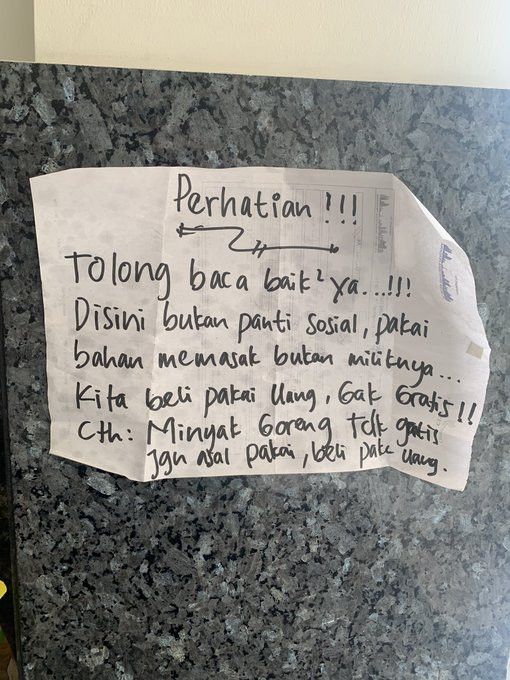 Perhatian !!!
Tolong baca baik² ya...!!!
Disini bukan panti sosial, pakai
bahan memasak bukan miliknya...
Kita beli pakai Uang, Gak Gratis!!
Cth: Minyak Goreng Tdk gratis
Jgn asal pakai, beli pake uang.